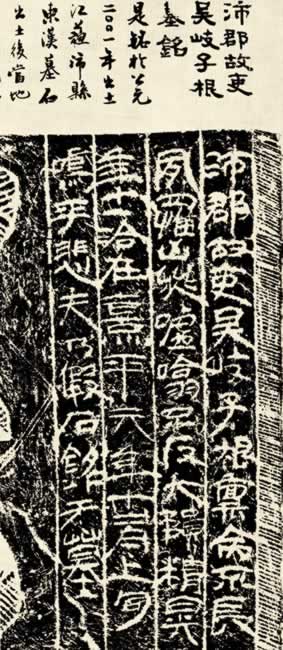 沛郡故吏
吳岐子根
墓銘
是銘於公元
二〇〇一年出土
江蘇沛縣
東漢墓石
出土後當地
沛郡故吏吳岐子根稟命不辰
夙羅凶災噓噏不反大隕精晃
年廿洽在熹平六年十一月上旬
嗚乎悲夫乃假石銘于墓